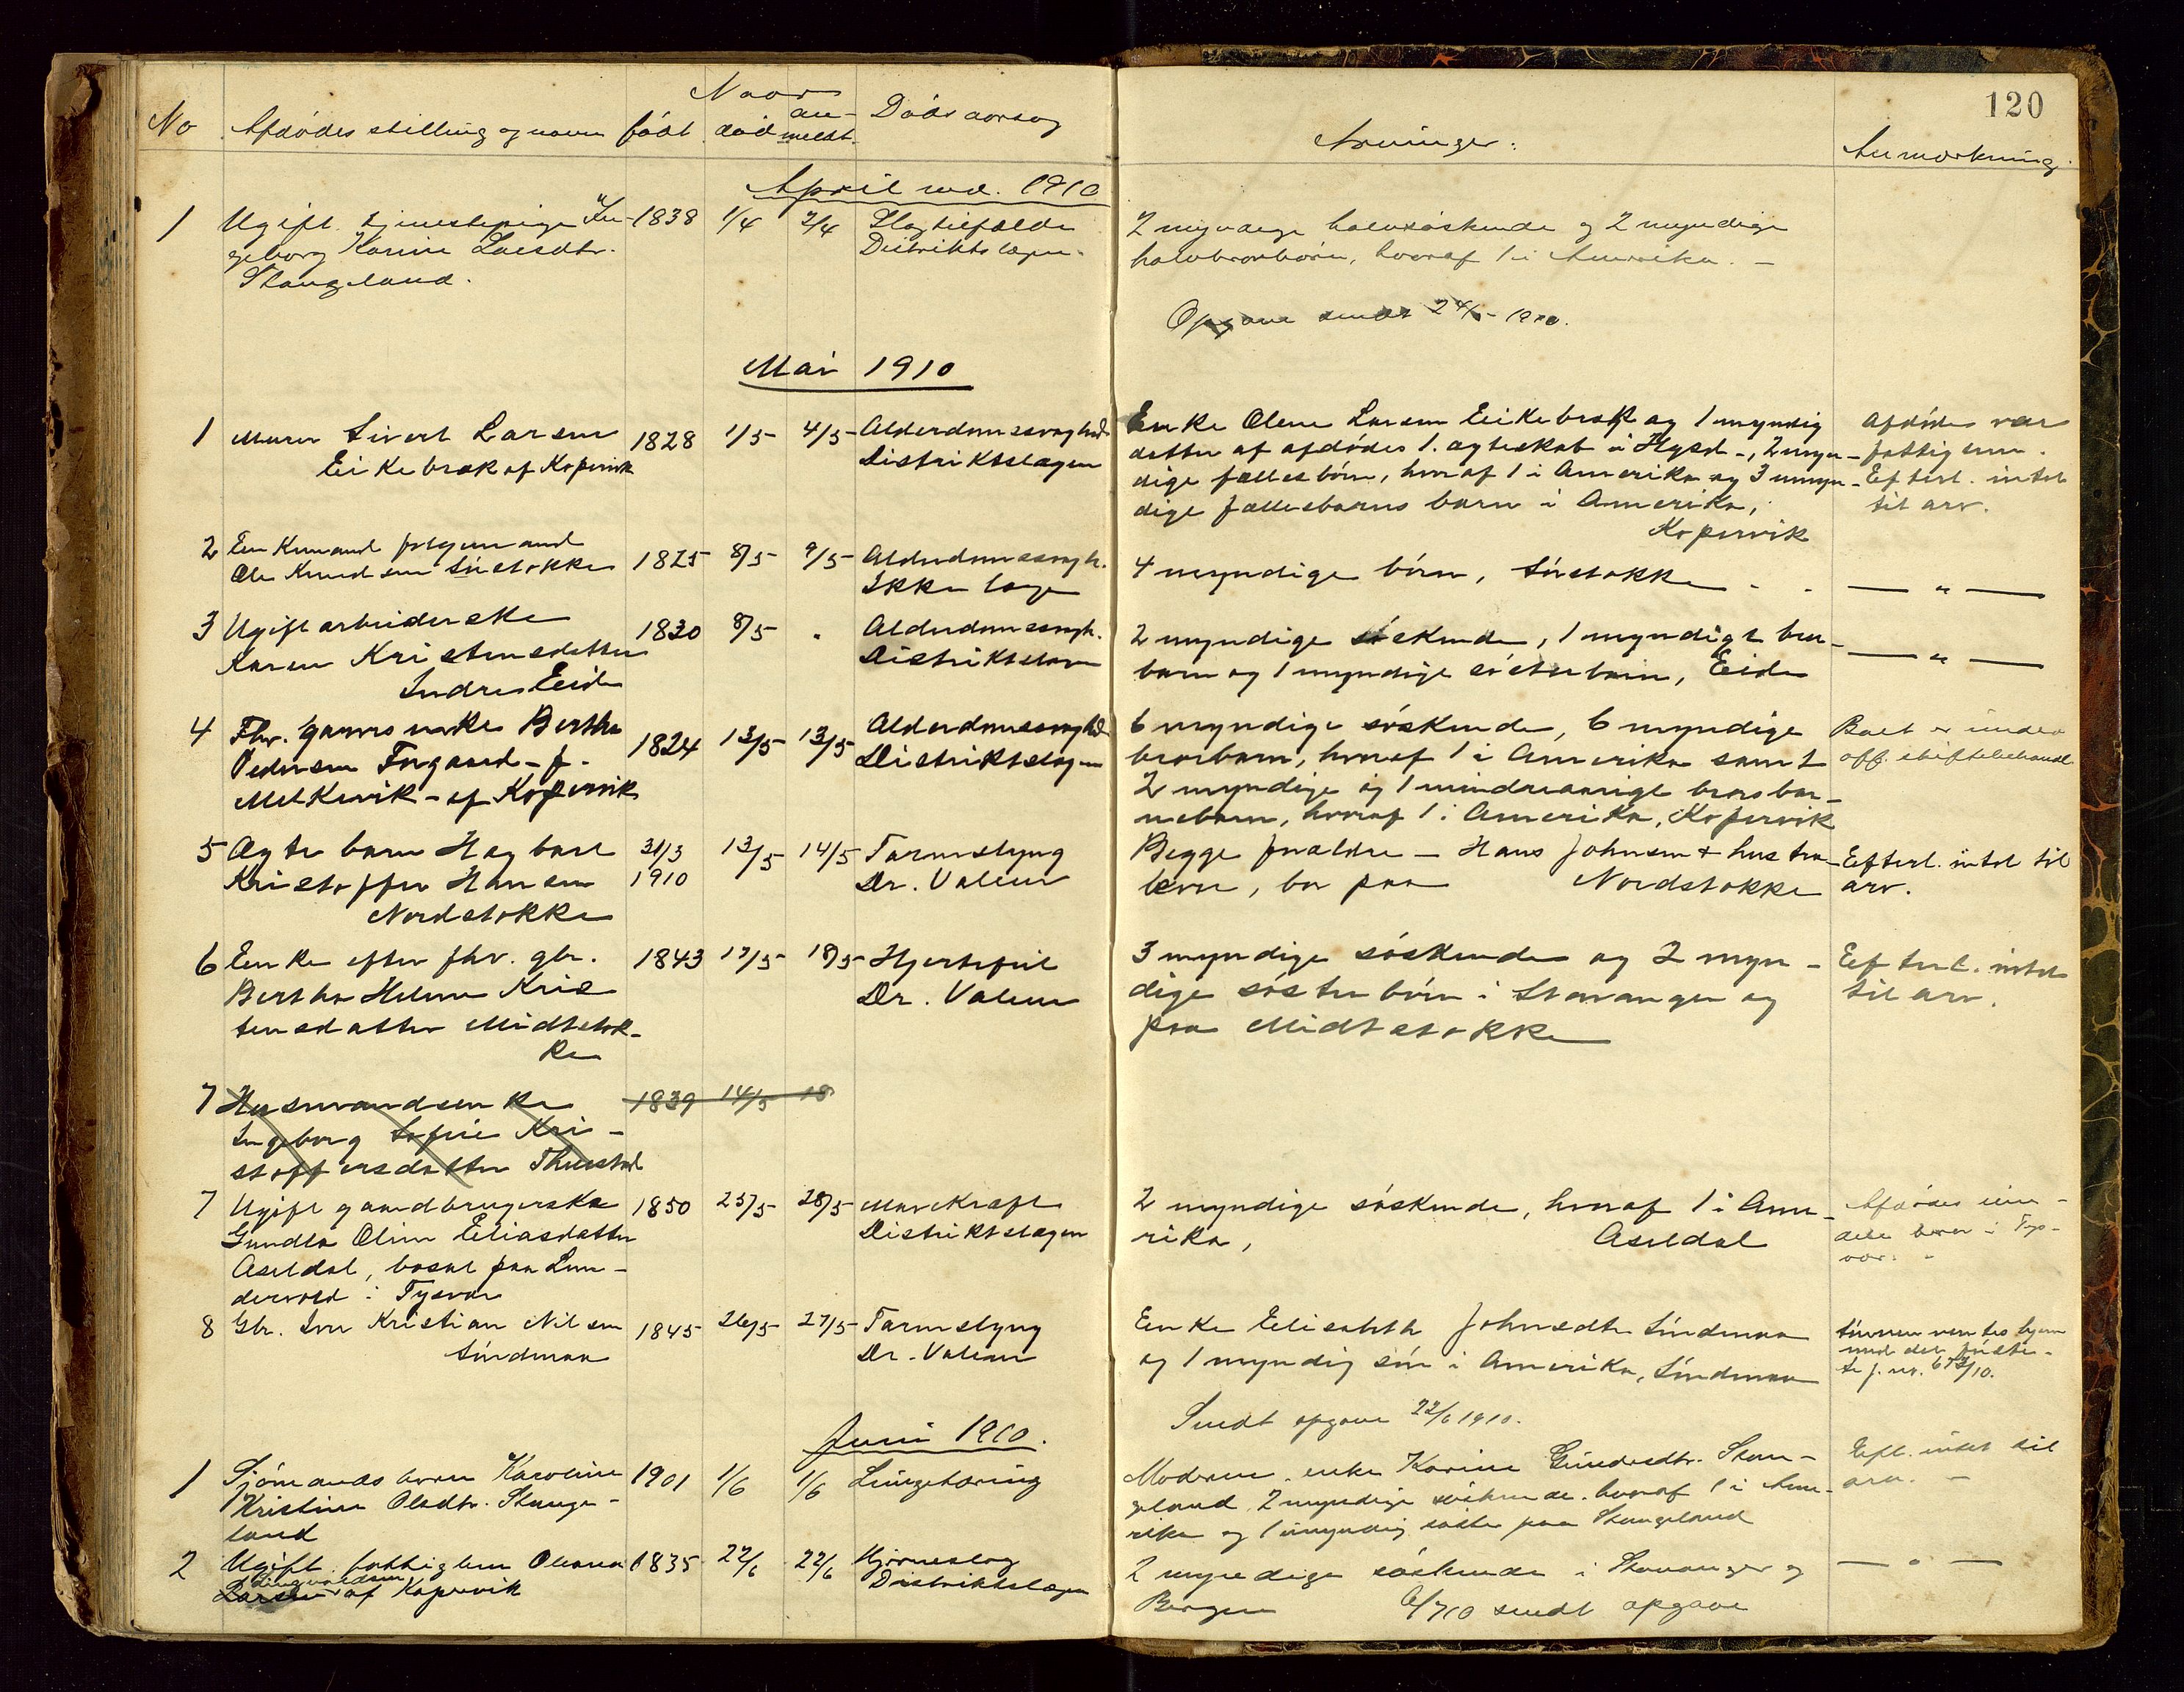 120
No Afdødes stilling og navn født Naar død anmeldt Dødsaarsag Arvinger: Anmærkning
April md. 1910
1 Ugift tjenestepige In- 1838 1/4 2/4 Slagtilfælde 2 myndige halvsøskende og 2 myndige
geborg Karine Larsdtr. Distriktslægen. halvbrorbørn, hvoraf 1 i Amerika. —
Stangeland.
Opgave sendt 1910.
Mai 1910
1 Murer Sivert Larsen 1828 1/5 4/5 Alderdomssvaghed Enke Olene Larsen Eikebræk og 1 myndig Afdødes var
Eikebræk af Kopervik Distriktslægen datter af afdødes 1. ægteskab i Hgsd -, 2 myn- fattiglem.
dige fællesbørn, hvoraf 1 i Amerika og 3 umyn- Efterl. intet
dige fællesbarns barn i Amerika, til arv.
Kopervik
2 Enkemand
Ole Knudsen Sørstokke 1825 8/5 9/5 Alderdomssvagh. 4 myndige børn, Sørstokke — " —
Ikke læge
3 Ugift arbeiderske 1830 8/5 Alderdomssvagh. 2 myndige søskende, 1 myndigt bror- — " —
Karen Kristensdatter Distriktslægen barn og 1 myndige søsterbarn, Eide
Indre Eide
4 Fhv. Bertha 1824 13/5 13/5 Alderdomssvaghed 6 myndige søskende, 6 myndige Boet er under
Pedersen f. Distriktslægen brorbarn, hvoraf 1 i Amerika samt off. skiftebehandl.
Melkevik - af Kopervik 2 myndige og 1 mindreaarigt brors bar-
nebarn, hvoraf 1 i Amerika, Kopervik
5 Ægte barn Hagbart 31/3 13/5 14/5 Tarmslyng Begge forældre — Hans Johnsen + hustru Efterl. intet til
Kristoffer Hansen 1910 Dr. Valeur lever, bor paa Nordstokke arv.
Nordstokke
6 Enke efter fhv. gbr. 1843 17/5 18/5 Hjertefeil 3 myndige søskende og 2 myn- Efterl. intet
Bertha Helene Kris Dr. Valeur dige søsterbørn i Stavanger og til arv.
tensdatter Midtstok- paa Midtstokke
ke
7 Husmandsenke 1839 14/5 18
Ingeborg Sofie Kri-
stoffersdatter
7 Ugift gaardbrugerske 1850 25/5 28/5 Marvkræft 2 myndige søskende, hvoraf 1 i Ame- Afdødes
Gundla Oline Eliasdatter Distriktslægen rika, Aseldal i Tys-
Aseldal, bosat paa Lun- vær.
dervold i Tysvær
8 Gbr. Iver Kristian Nilsen 1845 26/5 27/5 Tarmslyng Enke Elisabeth Johnsdtr Søndenaa Sønnen ventes hjem
Søndenaa Dr. Valeur og 1 myndig søn i Amerika, Søndenaa med det første.
Sendt opgave 22/6 1910.
Juni 1910.
1 Sjømands barn Karoline 1901 1/6 1/6 Lungetæring Moderen, enke Karine Stan- Efl. intet til
Kristine Olsdtr. Stange- geland, 2 myndige søskende, hvoraf 1 i Ame- arv. —
land rika og 1 umyndig søster paa Stangeland
2 Ugift fattiglem Oleana 1835 22/6 22/6 Hjerneslag 2 myndige søskende i Stavanger og — " —
Larsen af Kopervik Distriktslægen Bergen 6/7 10 sendt opgave